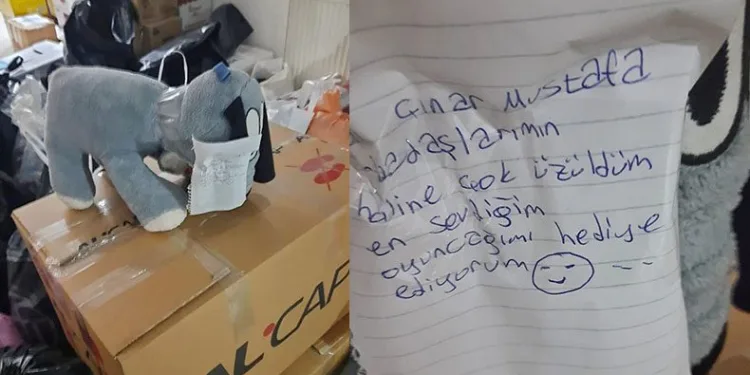 AL·CAP
Çınar Mustafa
dadaşlarımın
haline çok üzüldüm
en sevliğim
oyuncağımı hediye
ediyorum